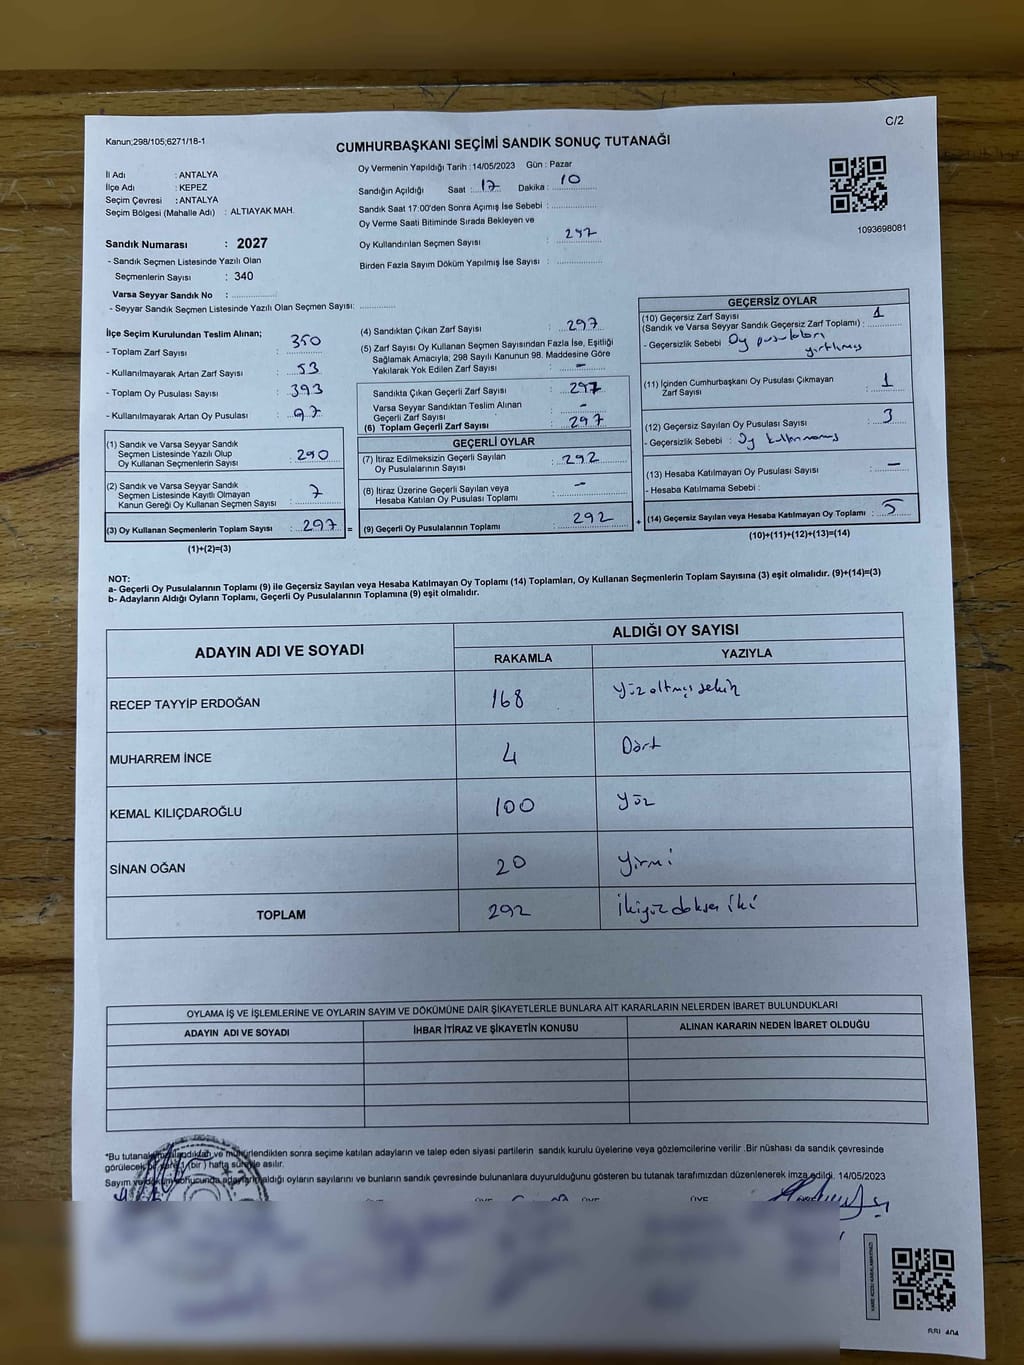 C/2
Kanun;298/105;6271/18-1
CUMHURBAŞKANI SEÇİMİ SANDIK SONUÇ TUTANAĞI
İl Adı : ANTALYA
İlçe Adı : KEPEZ
Seçim Çevresi : ANTALYA
Seçim Bölgesi (Mahalle Adı) : ALTIAYAK MAH.
Oy Vermenin Yapıldığı Tarih : 14/05/2023 Gün : Pazar
Sandığın Açıldığı Saat : 17 Dakika : 10
Sandık Saat 17:00'den Sonra Açımış İse Sebebi :
Oy Verme Saati Bitiminde Sırada Bekleyen ve
Oy Kullandırılan Seçmen Sayısı : 297
Birden Fazla Sayım Döküm Yapılmış İse Sayısı :
1093698081
Sandık Numarası : 2027
- Sandık Seçmen Listesinde Yazılı Olan
Seçmenlerin Sayısı : 340
Varsa Seyyar Sandık No :
- Seyyar Sandık Seçmen Listesinde Yazılı Olan Seçmen Sayısı:
İlçe Seçim Kurulundan Teslim Alınan;
- Toplam Zarf Sayısı : 350
- Kullanılmayarak Artan Zarf Sayısı : 53
- Toplam Oy Pusulası Sayısı : 393
- Kullanılmayarak Artan Oy Pusulası : 97
(1) Sandık ve Varsa Seyyar Sandık
Seçmen Listesinde Yazılı Olup
Oy Kullanan Seçmenlerin Sayısı : 290
(2) Sandık ve Varsa Seyyar Sandık
Seçmen Listesinde Kayıtlı Olmayan
Kanun Gereği Oy Kullanan Seçmen Sayısı : 7
(3) Oy Kullanan Seçmenlerin Toplam Sayısı : 297 =
(1)+(2)=(3)
(4) Sandıktan Çıkan Zarf Sayısı : 297
(5) Zarf Sayısı Oy Kullanan Seçmen Sayısından Fazla İse, Eşitliği
Sağlamak Amacıyla; 298 Sayılı Kanunun 98. Maddesine Göre
Yakılarak Yok Edilen Zarf Sayısı : -
Sandıkta Çıkan Geçerli Zarf Sayısı : 297
Varsa Seyyar Sandıktan Teslim Alınan
Geçerli Zarf Sayısı : -
(6) Toplam Geçerli Zarf Sayısı : 297
GEÇERLİ OYLAR
(7) İtiraz Edilmeksizin Geçerli Sayılan
Oy Pusulalarının Sayısı : 292
(8) İtiraz Üzerine Geçerli Sayılan veya
Hesaba Katılan Oy Pusulası Toplamı : -
(9) Geçerli Oy Pusulalarının Toplamı : 292 +
GEÇERSİZ OYLAR
(10) Geçersiz Zarf Sayısı
(Sandık ve Varsa Seyyar Sandık Geçersiz Zarf Toplamı) : 1
- Geçersizlik Sebebi : Oy pusulaları
yırtılmış
(11) İçinden Cumhurbaşkanı Oy Pusulası Çıkmayan
Zarf Sayısı : 1
(12) Geçersiz Sayılan Oy Pusulası Sayısı : 3
- Geçersizlik Sebebi : Oy kullanmamış
(13) Hesaba Katılmayan Oy Pusulası Sayısı : -
- Hesaba Katılmama Sebebi :
(14) Geçersiz Sayılan veya Hesaba Katılmayan Oy Toplamı : 5
(10)+(11)+(12)+(13)=(14)
NOT:
a- Geçerli Oy Pusulalarının Toplamı (9) ile Geçersiz Sayılan veya Hesaba Katılmayan Oy Toplamı (14) Toplamları, Oy Kullanan Seçmenlerin Toplam Sayısına (3) eşit olmalıdır. (9)+(14)=(3)
b- Adayların Aldığı Oyların Toplamı, Geçerli Oy Pusulalarının Toplamına (9) eşit olmalıdır.
ADAYIN ADI VE SOYADI
ALDIĞI OY SAYISI
RAKAMLA YAZIYLA
RECEP TAYYİP ERDOĞAN 168 Yüz altmış sekiz
MUHARREM İNCE 4 Dört
KEMAL KILIÇDAROĞLU 100 Yüz
SİNAN OĞAN 20 Yirmi
TOPLAM 292 İkiyüz doksan iki
OYLAMA İŞ VE İŞLEMLERİNE VE OYLARIN SAYIM VE DÖKÜMÜNE DAİR ŞİKAYETLERLE BUNLARA AİT KARARLARIN NELERDEN İBARET BULUNDUKLARI
ADAYIN ADI VE SOYADI İHBAR İTİRAZ VE ŞİKAYETİN KONUSU ALINAN KARARIN NEDEN İBARET OLDUĞU
*Bu tutanak ve mühürlendikten sonra seçime katılan adayların ve talep eden siyasi partilerin sandık kurulu üyelerine veya gözlemcilerine verilir .Bir nüshası da sandık çevresinde
görülecek 1 (bir ) hafta süreyle asılır.
Sayım ve döküm sonucunda adayların aldığı oyların sayılarını ve bunların sandık çevresinde bulunanlara duyurulduğunu gösteren bu tutanak tarafımızdan düzenlenerek imza edildi. 14/05/2023
ÜYE